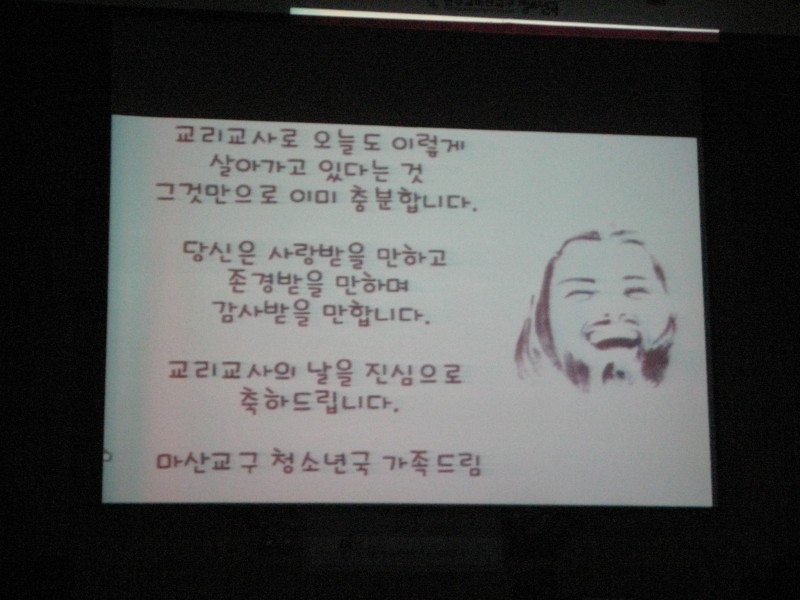 교리교사로 오늘도 이렇게
살아가고 있다는 것
그것만으로 이미 충분합니다.
당신은 사랑받을 만하고
존경받을 만하며
감사받을 만합니다.
교리교사의 날을 진심으로
축하드립니다.
마산교구 청소년국 가족드림